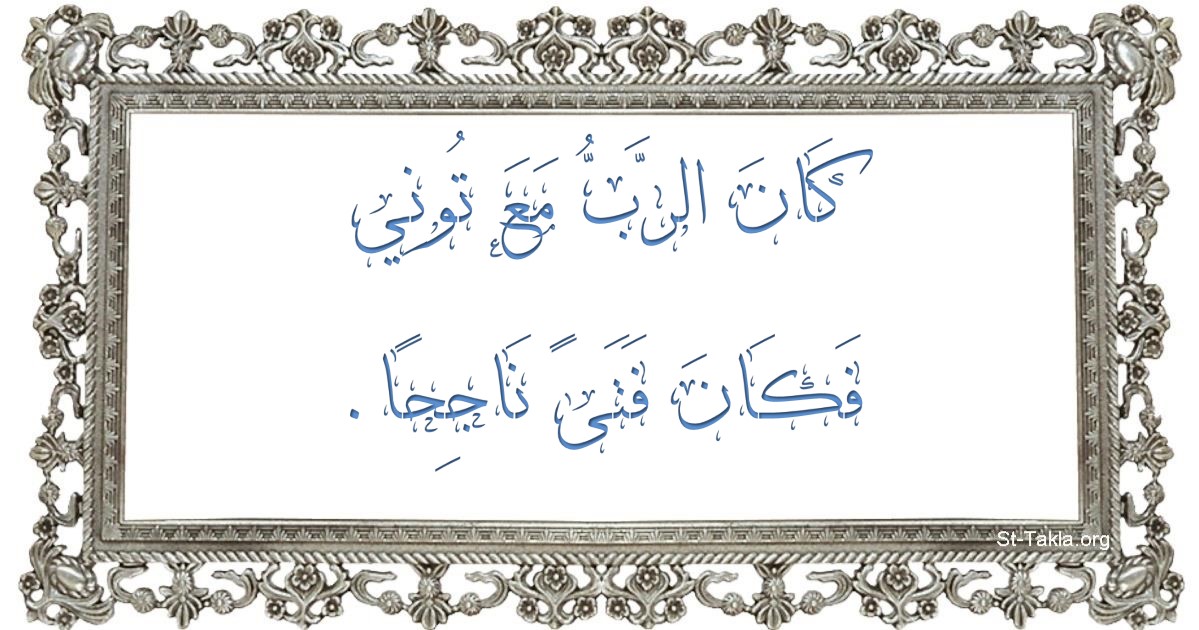 كَانَ الرَّبُّ مَعَ تُوني
فَكَانَ فَتَىً نَاجِحًا .
St-Takla.org